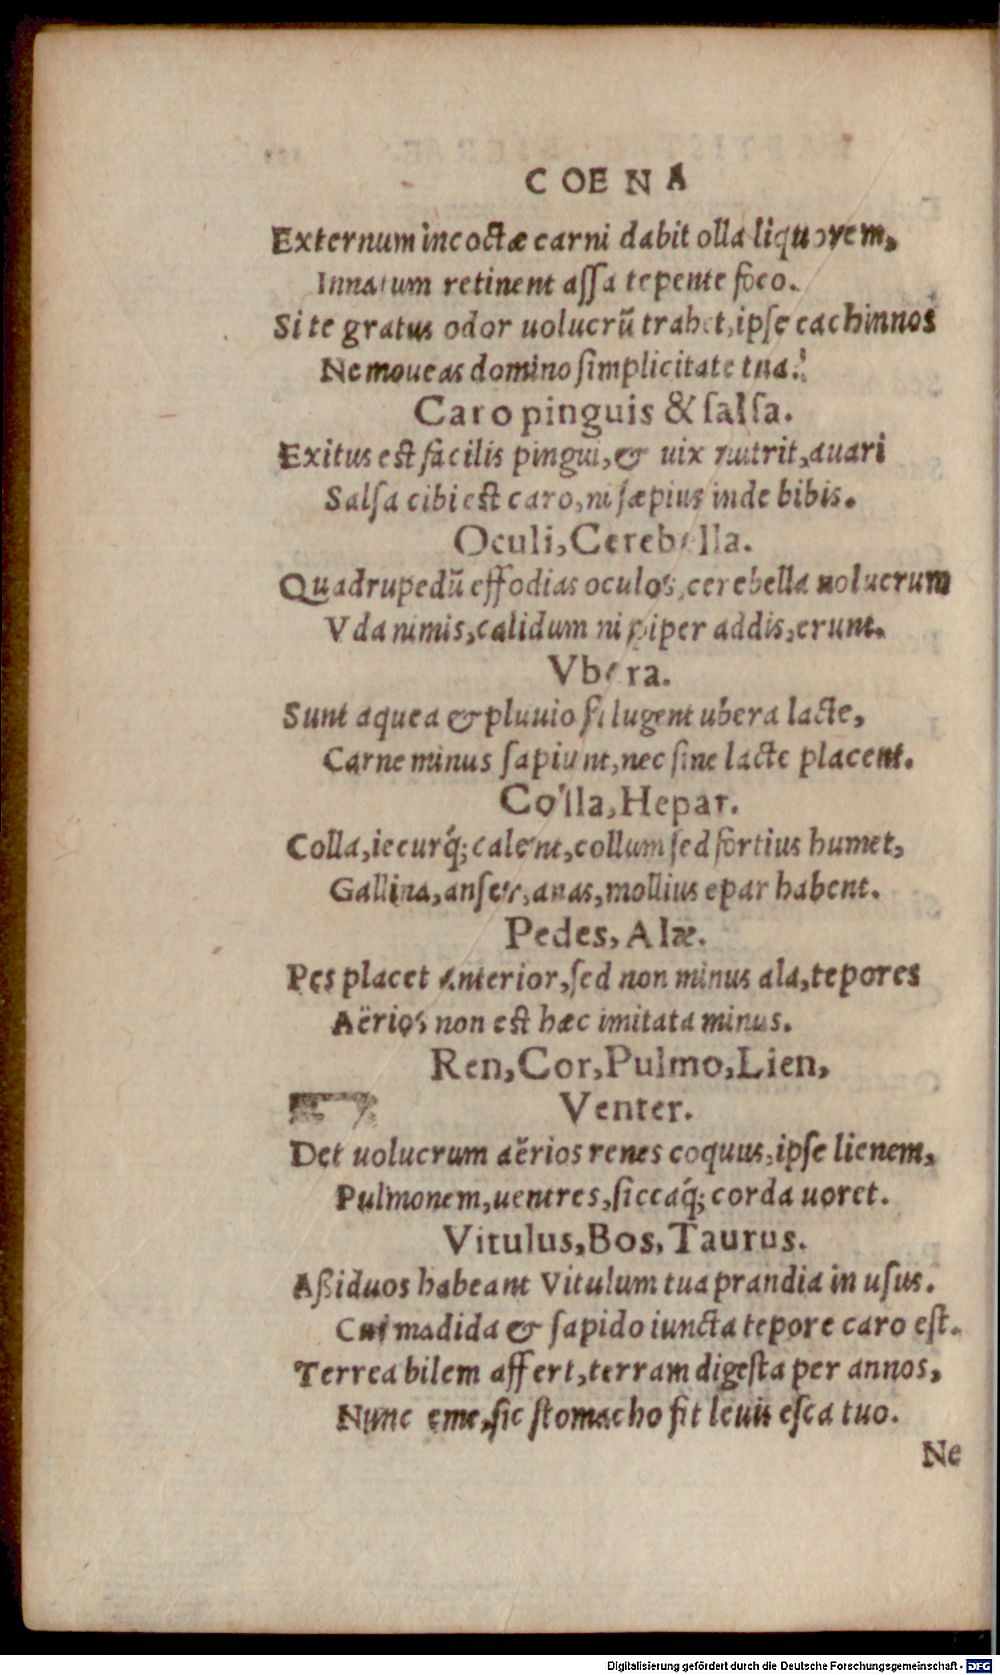 COENA
Externum incoctæ carni dabit olla liquorem,
Innatum retinent aſſa tepente foco.
Si te gratus odor uolucrũ trahet, ipſe cachinnos
Ne moueas domino ſimplicitate tua.
Caro pinguis & ſalſa.
Exitus eſt facilis pingui, & uix nutrit, auari
Salſa cibi eſt caro, ni ſæpius inde bibis.
Oculi, Cerebella.
Quadrupedũ effodias oculos, cerebella uolucrum
Vda nimis, calidum ni piper addis, erunt.
Vbera.
Sunt aquea & pluuio ſi lugent ubera lacte,
Carne minus ſapiunt, nec ſine lacte placent.
Colla, Hepar.
Colla, iecurq́; calent, collum ſed fortius humet,
Gallina, anſer, anas, mollius epar habent.
Pedes, Alæ.
Pes placet anterior, ſed non minus ala, tepores
Aërios non eſt hæc imitata minus.
Ren, Cor, Pulmo, Lien,
Venter.
Det uolucrum aërios renes coquus, ipſe lienem,
Pulmonem, uentres, ſiccaq́; corda uoret.
Vitulus, Bos, Taurus.
Aßiduos habeant Vitulum tua prandia in uſus.
Cui madida & ſapido iuncta tepore caro eſt.
Terrea bilem affert, terram digeſta per annos,
Nunc eme, ſic ſtomacho fit leuis eſca tuo.
Ne
Digitalisierung gefördert durch die Deutsche Forschungsgemeinschaft - DFG